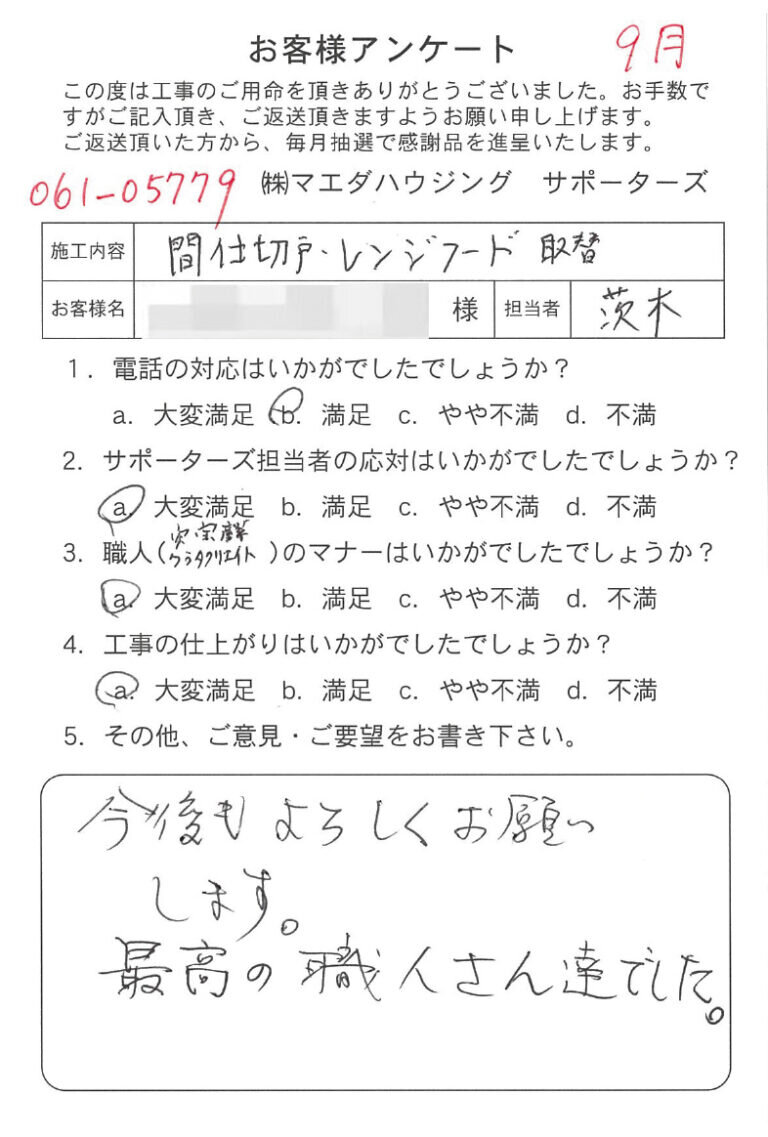 お客様アンケート 9月
この度は工事のご用命を頂きありがとうございました。お手数で
すがご記入頂き、ご返送頂きますようお願い申し上げます。
ご返送頂いた方から、毎月抽選で感謝品を進呈いたします。
061-05779 ㈱マエダハウジング サポーターズ
施工内容 間仕切戸・レンジフード 取替
お客様名 様 担当者 茨木
1. 電話の対応はいかがでしたでしょうか?
a. 大変満足 b. 満足 c. やや不満 d. 不満
2. サポーターズ担当者の応対はいかがでしたでしょうか?
a. 大変満足 b. 満足 c. やや不満 d. 不満
3. 職人( クラタクリエイト )のマナーはいかがでしたでしょうか?
a. 大変満足 b. 満足 c. やや不満 d. 不満
4. 工事の仕上がりはいかがでしたでしょうか?
a. 大変満足 b. 満足 c. やや不満 d. 不満
5. その他、ご意見・ご要望をお書き下さい。
今後もよろしくお願い
します。
最高の職人さん達でした。